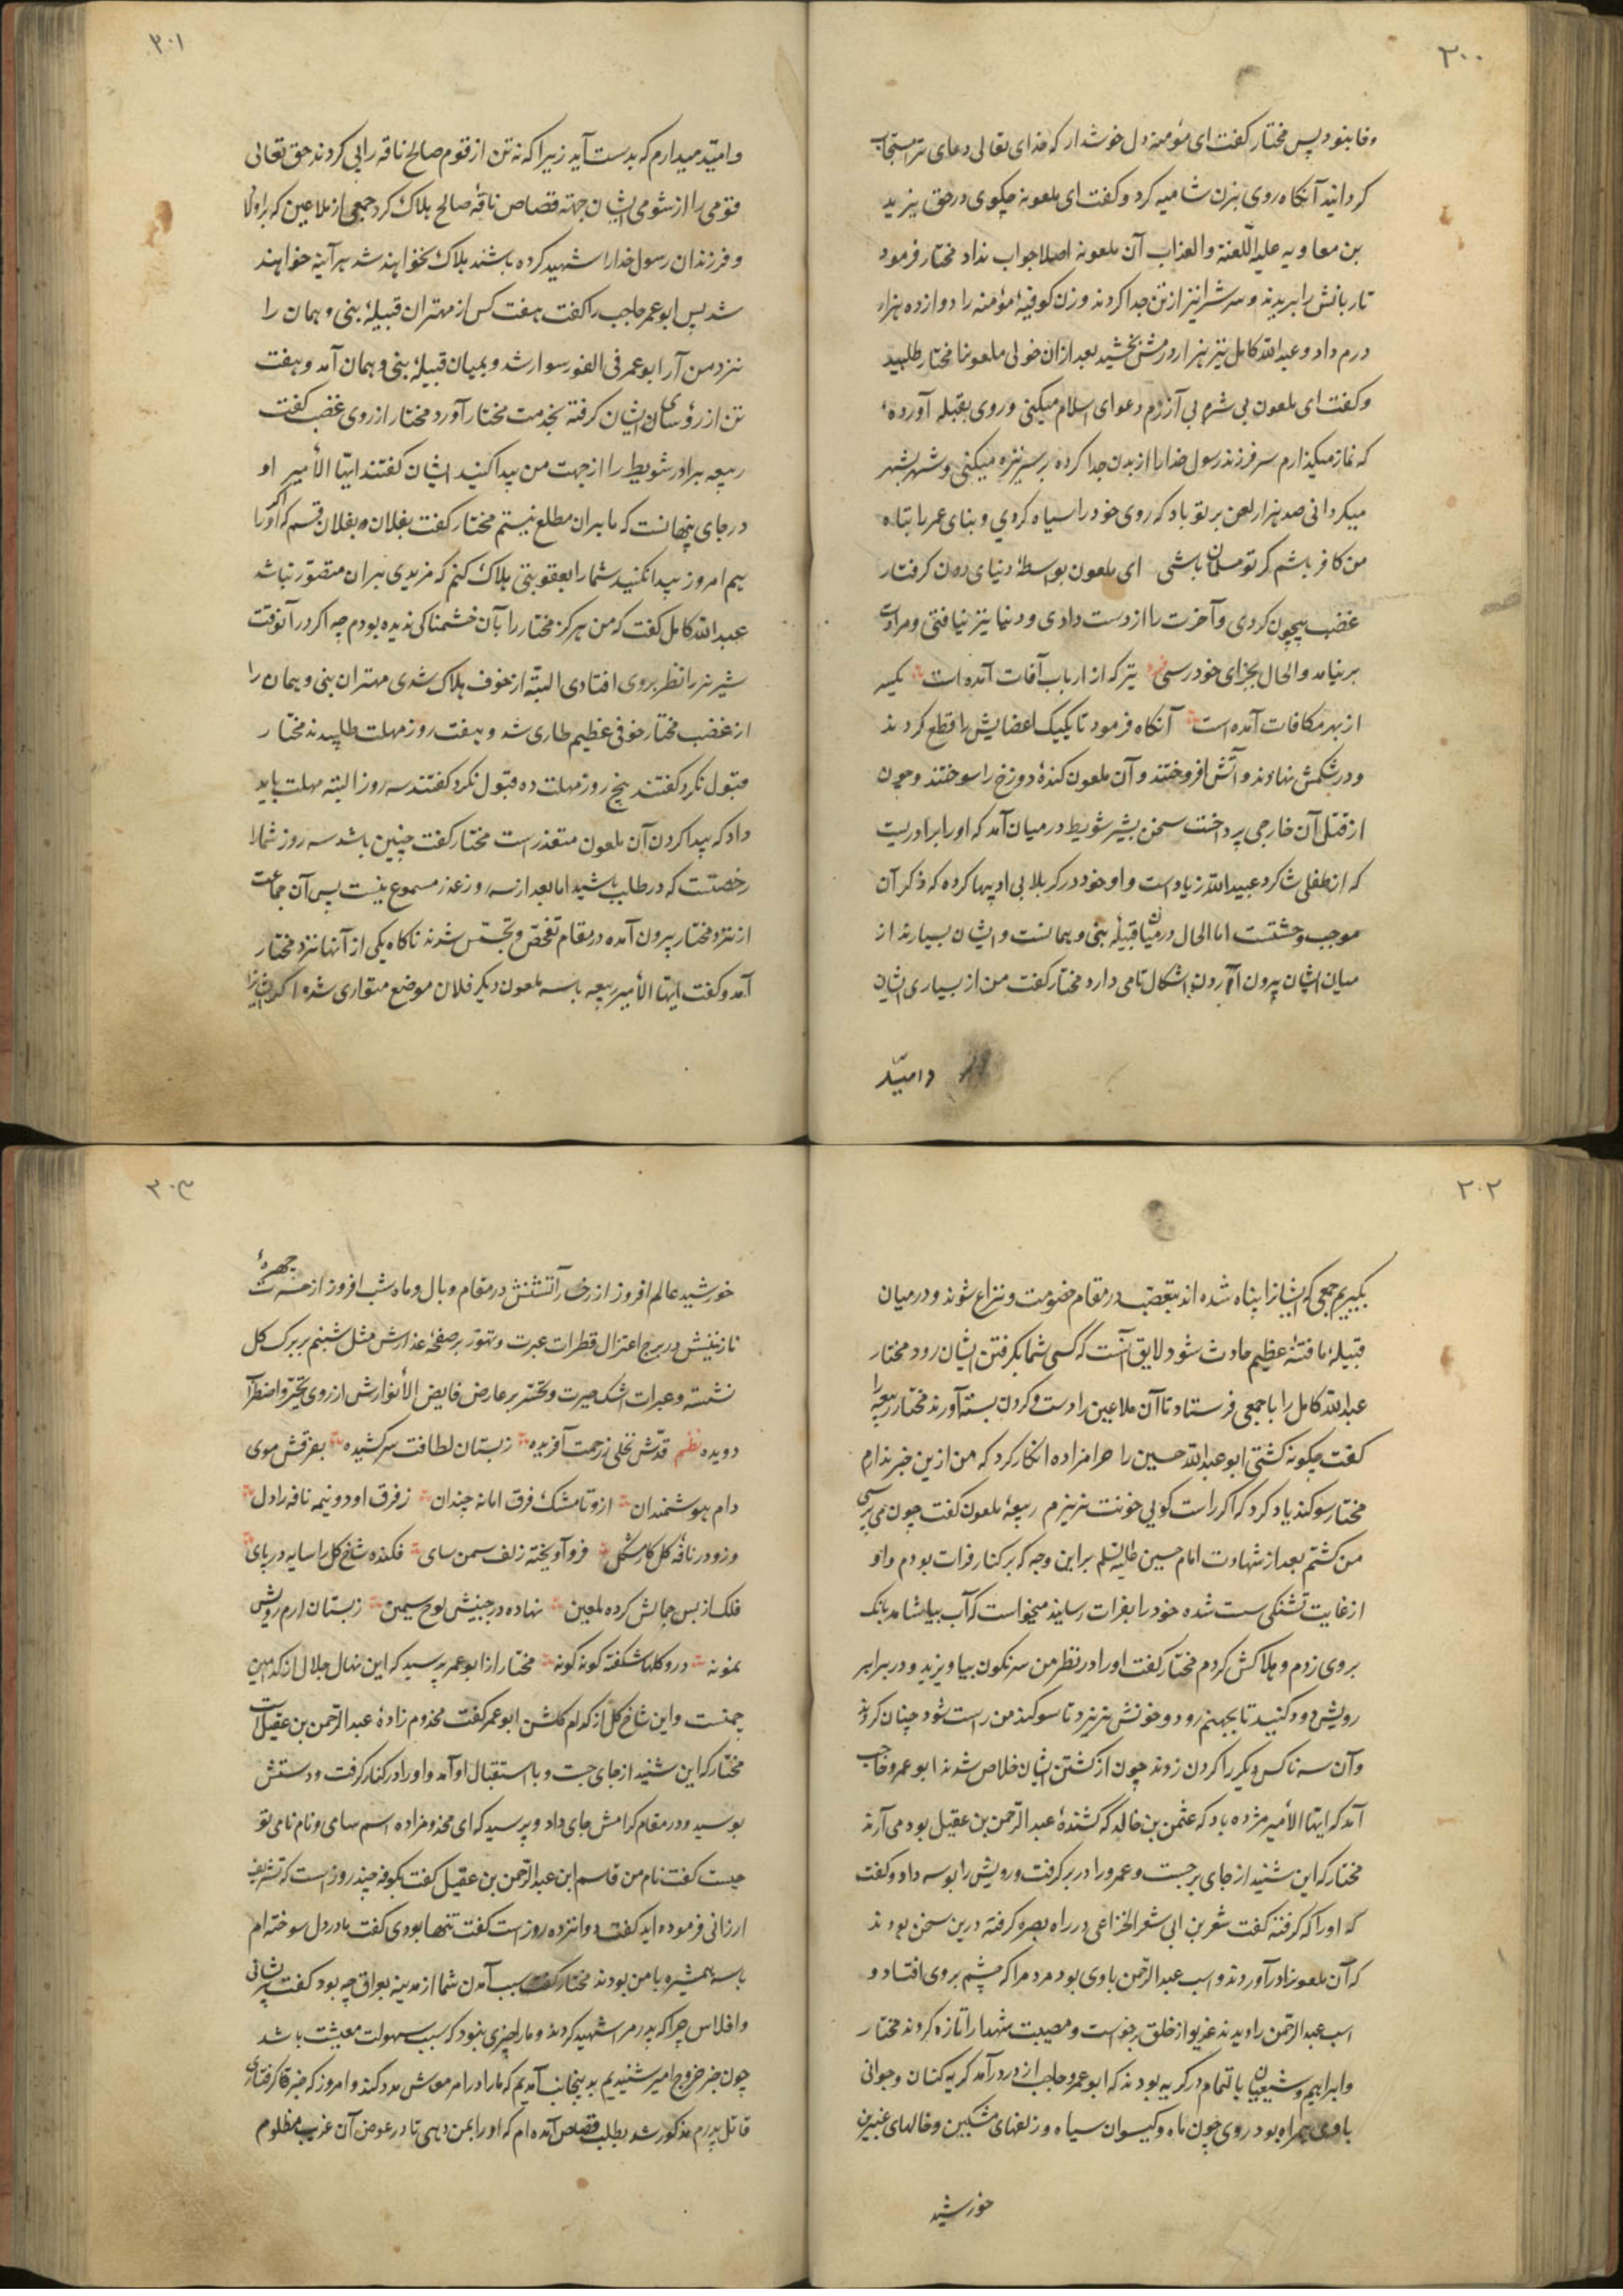 ۳۰۰
وفا بنود پس مختار کفت ای مؤمنه دل خوشدار که خدای تعالی دعای ترا مستجاب
کردانید آنکاه روی بزن شامیه کرد و کفت ای ملعونه چکوی در حق یزید
بن معاویه علیه اللّعنة والعذاب آن ملعونه اصلا جواب نداد مختار فرمود
تا زبانش را بریدند و سرش را نیز از تن جدا کردند و زن کوفیهٔ مؤمنه را دوازده هزار
درم داد و عبدالله کامل نیز هزار درمش بخشید بعد از ان خولی ملعونرا مختار طلبید
و کفت ای ملعون بی شرم بی آزرم دعوای اسلام میکنی و روی بقبله آوردهٔ
که نماز میکذارم سر فرزند رسول خدا را از بدن جدا کرده بر سر نیزه میکنی و شهر بشهر
میکردانی صد هزار لعن بر تو باد که روی خود را سیاه کردی و بنای عمر را تباه
من کافر باشم کر تو مسلمان باشی ای ملعون بواسطهٔ دنیای دون کرفتار
غضب بیچون کردی و آخرت را از دست دادی و دنیا نیز نیافتی و مرادت
بر نیامد والحال بجزای خود رسی تیر که از ارباب آفات آمده است یکسر
از بهر مکافات آمده است آنکاه فرمود تا یکیک اعضایش را قطع کردند
و در شکمش نهادند و آتش افروختند و آن ملعون کندهٔ دوزخ را سوختند و چون
از قتل آن خارجی پرداخت سخن بشیر شویط در میان آمد که او را برادریست
که از طفلی شاکرد عبیدالله زیاد است و او خود در کربلا بی ادبیها کرده که ذکر آن
موجب وحشتست اما الحال در میان قبیلهٔ بنی وهمانست و ایشان بسیارند از
میان ایشان بیرون آوردن اشکال تمامی دارد مختار کفت من از بسیاری ایشان
و امیّد
۳۰۱
و امیّد میدارم که بدست آید زیرا که نه تن از قوم صالح ناقه را پی کردند حق تعالی
قومی را از شومی ایشان جهته قصاص ناقهٔ صالح هلاک کرد جمعی از ملاعین که اولاد
و فرزندان رسول خدا را شهید کرده باشند هلاک نخواهند شد هر آینه خواهند
شد پس ابو عمر حاجب را کفت هفت کس از مهتران قبیلهٔ بنی وهمان را
نزد من آر ابو عمر فی الفور سوار شد و بمیان قبیلهٔ بنی وهمان آمد و هفت
تن از رؤسای ایشان کرفته بخدمت مختار آورد مختار از روی غضب کفت
ربیعه برادر شویط را از جهت من پیدا کنید ایشان کفتند ایّها الأمیر او
در جای پنهانست که ما بران مطلع نیستم مختار کفت بفلان و بفلان قسم که اکر او را
بیم امروز پیدا نکنید شما را بعقوبتی هلاک کنم که مزیدی بران متصوّر نباشد
عبدالله کامل کفت که من هرکز مختار را بآن خشمناکی ندیده بودم چه اکر در آنوقت
شیر نر را نظر بروی افتادی البتّه از خوف هلاک شدی مهتران بنی وهمان را
از غضب مختار خوفی عظیم طاری شد و هفت روز مهلت طلبیدند مختار
قبول نکرد کفتند پنج روز مهلت ده قبول نکرد کفتند سه روز البته مهلت باید
داد که پیدا کردن آن ملعون متعذر است مختار کفت چنین باشد سه روز شما را
رخصتست که در طلب باشید اما بعد از سه روز عذر مسموع نیست پس آن جماعت
از نزد مختار بیرون آمده در مقام تفحّص و تجسّس شدند ناکاه یکی از آنها نزد مختار
آمد و کفت ایّها الأمیر ربیعه با سه ملعون دیکر فلان موضع متواری شده اکر ایشانرا
۳۰۲
بکیریم جمعی که ایشانرا پناه شده اند بتعصّب در مقام خصومت و نزاع شوند و در میان
قبیلهٔ ما فتنهٔ عظیم حادث شود لایق آنست که کسی شما بکرفتن ایشان رود مختار
عبدالله کامل را با جمعی فرستاد تا آن ملاعین را دست و کردن بسته آورند مختار ربیعه را
کفت چکونه کشتی ابو عبدالله حسین را حرامزاده انکار کرد که من ازین خبر ندارم
مختار سوکند یاد کرد که اکر راست کویی خونت نریزم ربیعهٔ ملعون کفت چون می پرسی
من کشتم بعد از شهادت امام حسین علیه السلم براین وجه که بر کنار فرات بودم و او
از غایت تشنکی سست شده خود را بفرات رسانید میخواست که آب بیاشامد بانک
بروی زدم و هلاکش کردم مختار کفت او را در نظر من سرنکون بیاویزید و در برابر
رویش دود کنید تا بجهنم رود و خونش نریزد تا سوکند من راست شود چنان کردند
و آن سه ناکس دیکر را کردن زدند چون از کشتن ایشان خلاص شدند ابو عمرو حاجب
آمد که ایّها الأمیر مژده باد که عثمن بن خالد که کشندهٔ عبد الرّحمن بن عقیل بود می آرند
مختار که این شنید از جای برجست و عمرو را در بر کرفت و رویش را بوسه داد و کفت
که او را که کرفته کفت شعر بن ابی شعر الخزاعی در راه بصره کرفته درین سخن بودند
که آن ملعونرا در آوردند و اسب عبد الرّحمن با وی بود مردم را که چشم بروی افتاد و
اسب عبد الرّحمن را دیدند غریو از خلق برخواست و مصیبت شهدا را تازه کردند مختار
و ابراهیم و شیعیان با لتمام در کریه بودند که ابو عمرو حاجب از در درآمد کریه کنان و جوانی
با وی همراه بود روی چون ماه و کیسوان سیاه و زلفهای مشکین و خالهای عنبرین
خورشید
۳۰۳
خورشید عالم افروز از رخسار آتشنش در مقام وبال و ماه شب افروز از حسرت چهرهٔ
نازنینش در برج اعتزال قطرات عبرت و تهوّر بر صفحهٔ عذارش مثل شبنم بر برک کل
نشسته و عبرات اشک حیرت و تحسّر بر عارض فایض الأنوارش از روی تحیّر و اضطراب
دویده نظم قدّش نخلی ز رحمت آفریده ز بستان لطافت سر کشیده بفرقش موی
دام هوشمندان ازو تا مشک فرق امانه چندان ز فرق او دو نیمه نافه را دل
وزو در نافهٔ کل کار مشکل فرو آویخته زلف سمن سای فکنده شاخ کل را سایه در پای
فلک از بس جمالش کرده تلقین نهاده در جبینش لوح سیمین ز بستان ارم رویش
نمونه درو کلها شکفته کونه کونه مختار از ابو عمر پرسید که این نهال جلال از کدامین
چمنست و این شاخ کل از کدام کلشن ابو عمر کفت مخدوم زادهٔ عبد الرّحمن بن عقیل است
مختار که این شنید از جای جست و با استقبال او آمد و او را در کنار کرفت و دستش
بوسید و در مقام کرامش جای داد و پرسید که ای مخدومزاده اسم سامی و نام نامی تو
چیست کفت نام من قاسم ابن عبد الرّحمن بن عقیل کفت بکوفه چند روز است که تشریف
ارزانی فرموده اید کفت دوانزده روز است کفت تنها بودی کفت مادر دل سوخته ام
با سه همشیره با من بودند مختار کفت سبب آمدن شما از مدینه بعراق چه بود کفت پریشانی
و افلاس چرا که پدر مرا شهید کردند و ما را چیزی نبود که سبب سهولت معیشت باشد
چون خبر خروج امیر شنیدیم بدینجانب آمدیم که ما را در امر معاش مدد کند و امروز که خبر کرفتاری
قاتل پدرم مذکور شد بطلب قصاص آمده ام که او را بمن دهی تا در عوض آن غریب مظلوم